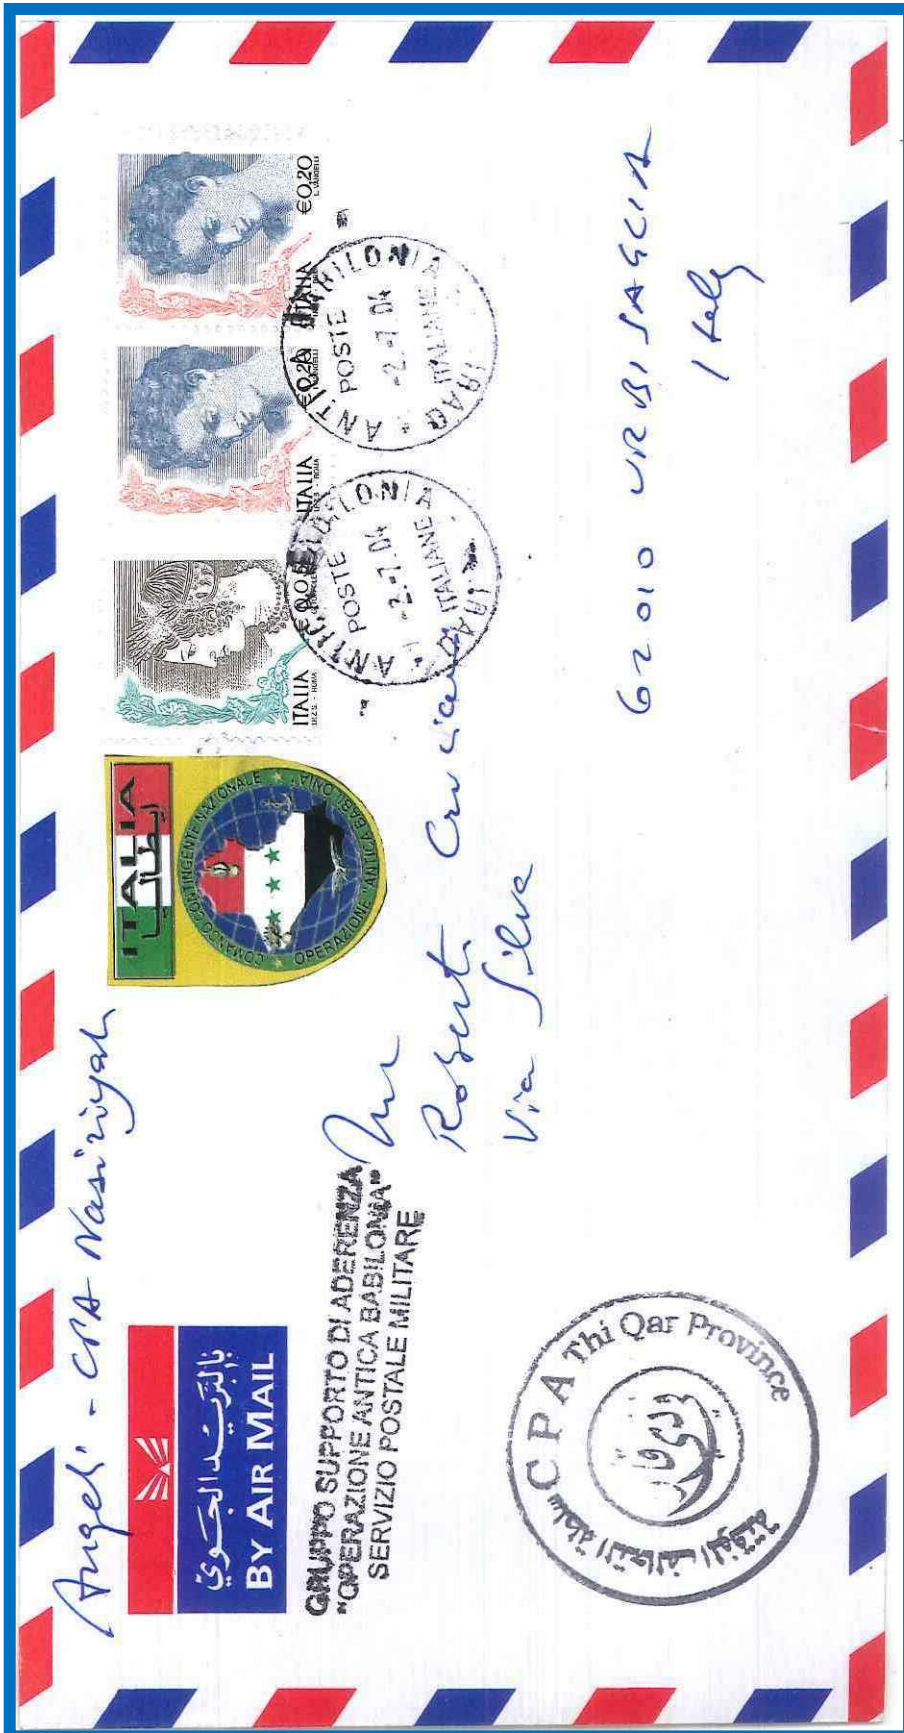 Angeli - CPA Nasiriyah
بالبريد الجوي
BY AIR MAIL
ITALIA
ايطاليا
COMANDO CONTINGENTE NAZIONALE
OPERAZIONE "ANTICA BABILONIA"
ITALIA
I.P.Z.S. - ROMA
ITALIA €0,20
I.P.Z.S. - ROMA
ITALIA €0,20
L. VANGELLI
ANTICA BABILONIA
POSTE
-2.7.04
ITALIANE
IRAQ
ANTICA BABILONIA
POSTE
-2.7.04
ITALIANE
IRAQ
GRUPPO SUPPORTO DI ADERENZA
"OPERAZIONE ANTICA BABILONIA"
SERVIZIO POSTALE MILITARE
Roberto Cruciani
Via Silva
62010 URBISAGLIA
Italy
CPA Thi Qar Province
سلطة التحالف المؤقتة
ذي قار